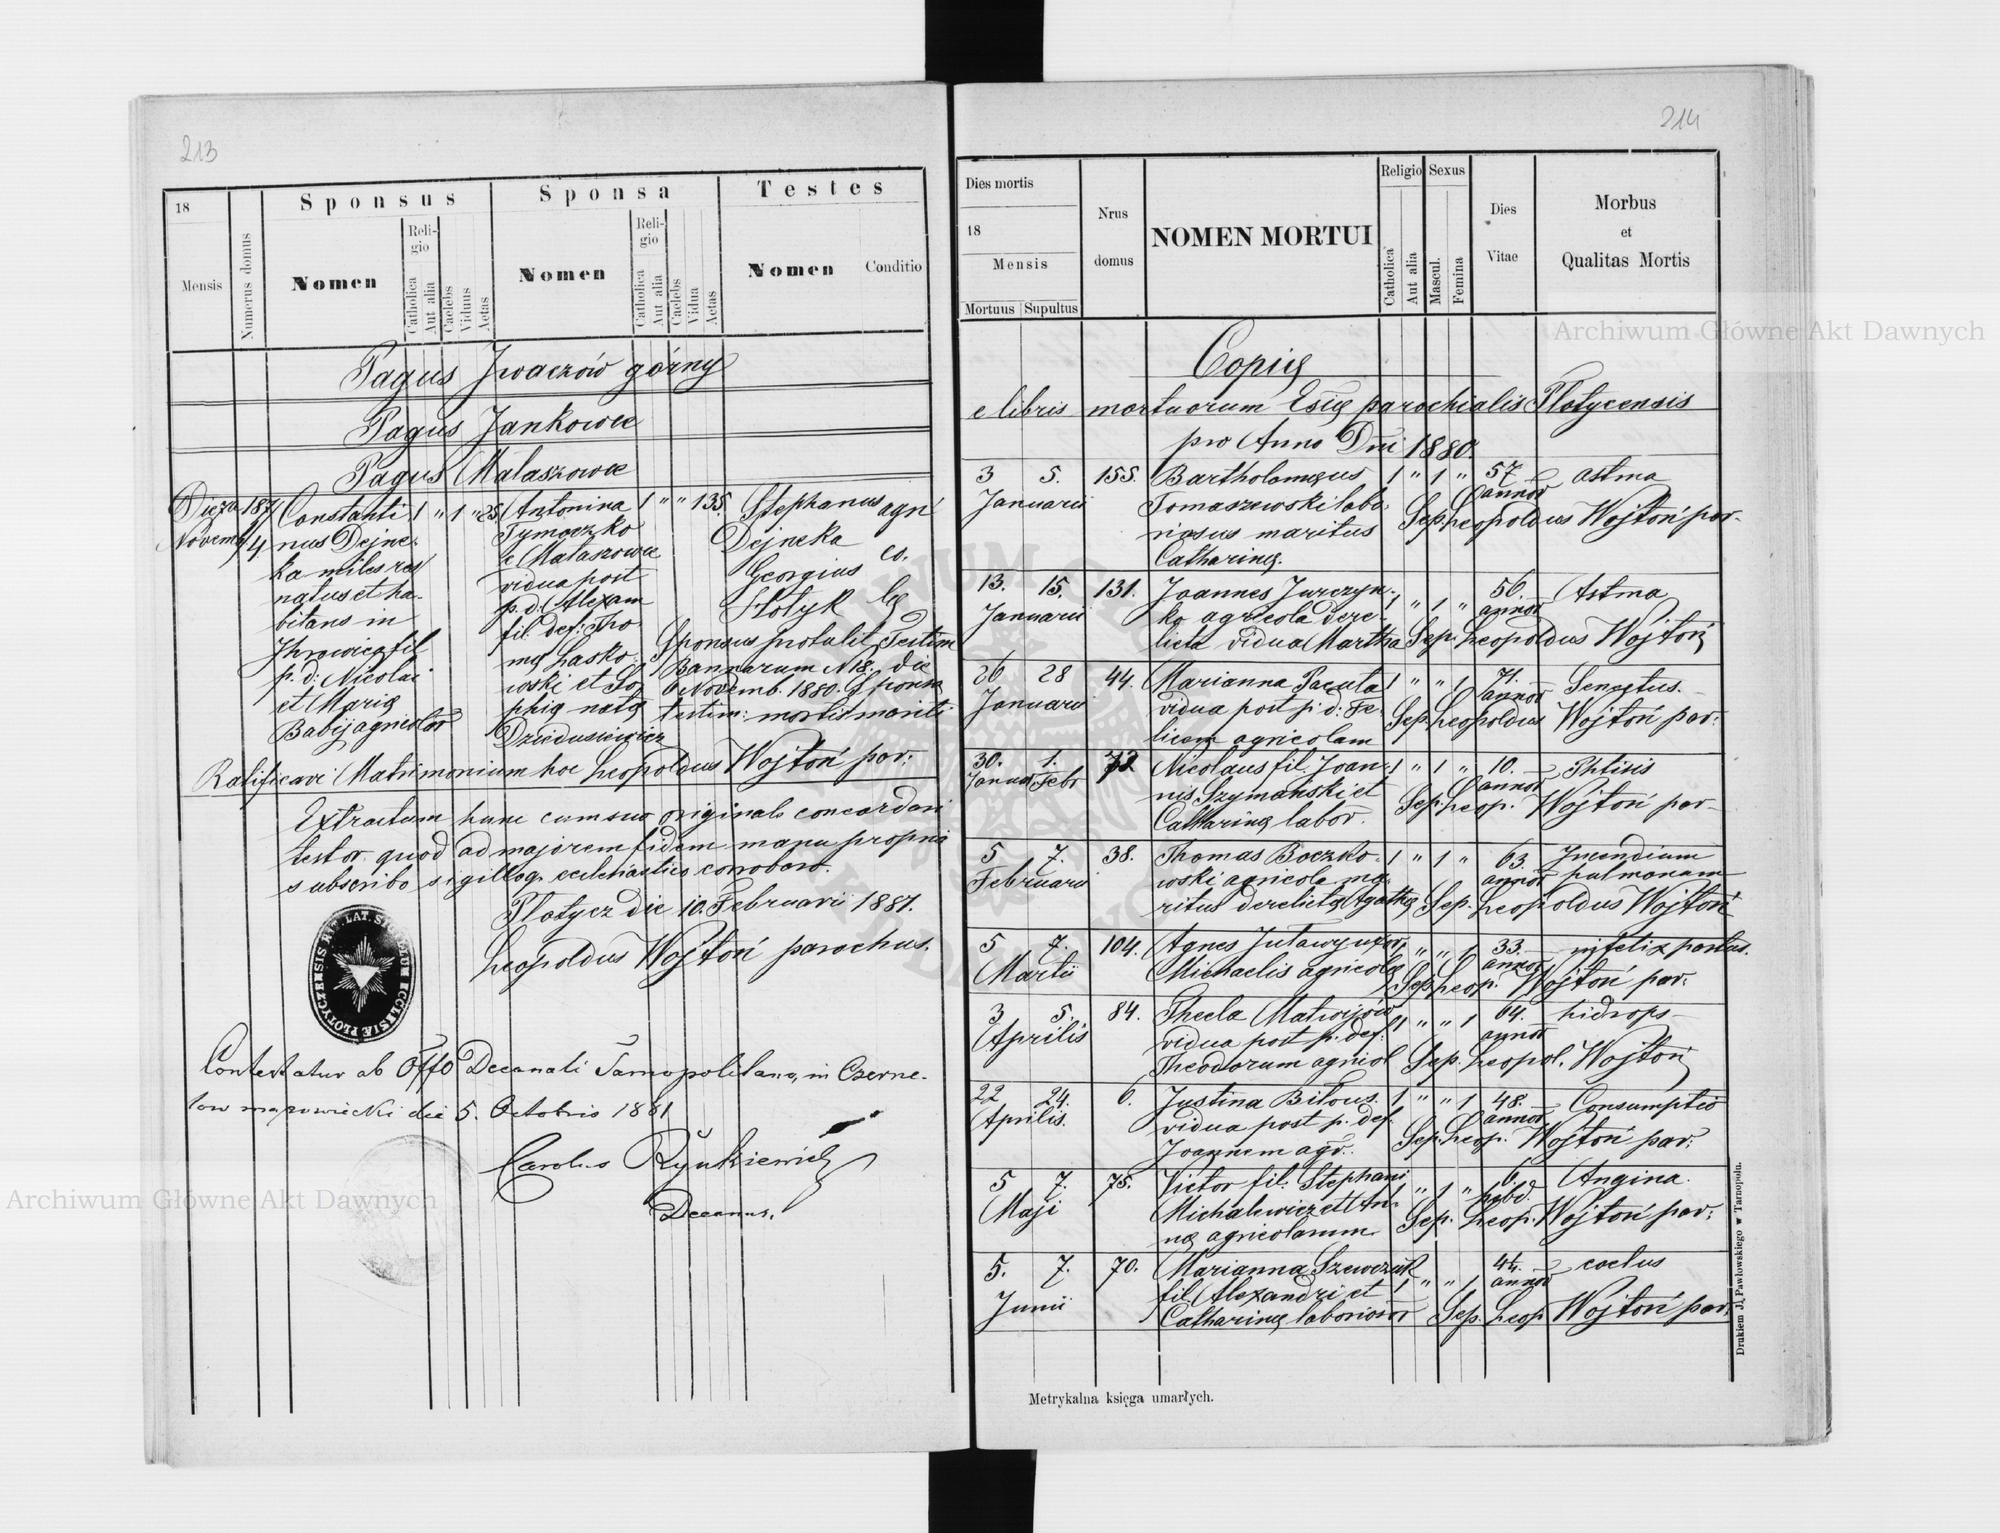 213
18
Mensis
Numerus domus
Sponsus
Nomen
Religio
Catholica
Aut alia
Caelebs
Viduus
Aetas
Sponsa
Nomen
Religio
Catholica
Aut alia
Caelebs
Vidua
Aetas
Testes
Nomen
Conditio
Pagus Iwaczów górny
Pagus Jankowce
Pagus Malaszowce
Novemb 4
Constanti 1 " 1 " 25
nus Dejne-
ka miles res
natus et ha-
bitans in
fil
p. d: Nicolai
et Mariæ
Babij agricolar
Antonina 1 " " 1 35.
Tymoczko
e Malaszowce
vidua post
p. d: Alexam
fil. def: Tho
mæ Lasko-
wski et So
phiæ natæ
Dziedusiewicz
Stephanus agri
Dejneka co.
Georgius
Hotyk læ
Sponsus protulit Testim
Bannorum N 18. die
6 Novemb. 1880. Sponsa
testim: mortis mariti
Ratificavi Matrimonium hoc Leopoldus Wojtoń par:
Extractum hunc cum suo originale concordari
testor quod ad majorem fidem manu propria
subscribo sigilloq. ecclesiastico corroboro.
Płotycz die 10. Februarii 1881.
Leopoldus Wojtoń parochus.
Contestatur ab Offo Decanali Tarnopolitano, in Czerne-
low mazowiecki die 5. Octobris 1881
Carolus
Decanus.
214
Dies mortis
18
Mensis
Mortuus Supultus
Nrus domus
NOMEN MORTUI
Religio
Catholica
Aut alia
Sexus
Mascul.
Femina
Dies Vitae
Morbus
et
Qualitas Mortis
Copia
e libris mortuorum Esiæ parochialis Płotycensis
pro Anno Dni 1880.
3 5. 155. Bartholomæus 1 " 1 " 57 astma
Januarii Tomaszewski labo- annor
riosus maritus Sep. Leopoldus Wojtoń par.
Catharinæ.
13. 15. 131. Joannes Jurczyn- 1 " 1 " 56. Astma
Januarii ko agricola dere- annor
licta vidua Martha Sep. Leopoldus Wojtoń
26 28 44. Marianna Pacuta 1 " " 1 71. Senectus.
Januarii vidua post p. d: Fe- annor
licem agricolam Sep. Leopoldus Wojtoń par:
30. 1. 72 Nicolaus fil. Joan- 1 " 1 " 10. Phtisis
Januar. Febr nis Szymanski et annor
Catharinæ labor. Sep. Leop. Wojtoń par
5 7. 38. Thomas Boczko- 1 " 1 " 63. Incendium
Februarii wski agricola ma- annor pulmonam
ritus derelictæ Agathæ Sep. Leopoldus Wojtoń
5 7. 104. Agnes Jutawy uxor 1 " " 1 33. infelix partus.
Martii Michaelis agricolæ annor
Sep. Leop. Wojtoń par:
3 5. 84. Thecla Matwijów 1 " " 1 64. hidrops
Aprilis vidua post p. def: annor
Theodorum agricol Sep. Leopol. Wojtoń
22 24. 6. Justina Bilous. 1 " " 1 48. Consumptio
Aprilis. vidua post p. def. annor
Joannem agr. Sep. Leop. Wojtoń par:
5 7. 75. Victor fil: Stephani 1 " 1 " 6. Angina.
Maji Michalewicz et An- hebd.
næ agricolarum Sep. Leop. Wojtoń par:
5. 7. 70. Marianna Szewczuk 1 " " 1 44. coctus
Junii fil. Alexandri et annor
Catharinæ laborioror Sep. Leop Wojtoń par.
Metrykalna księga umarłych.
Drukiem J. Pawłowskiego w Tarnopolu.
Archiwum Główne Akt Dawnych
Archiwum Główne Akt Dawnych